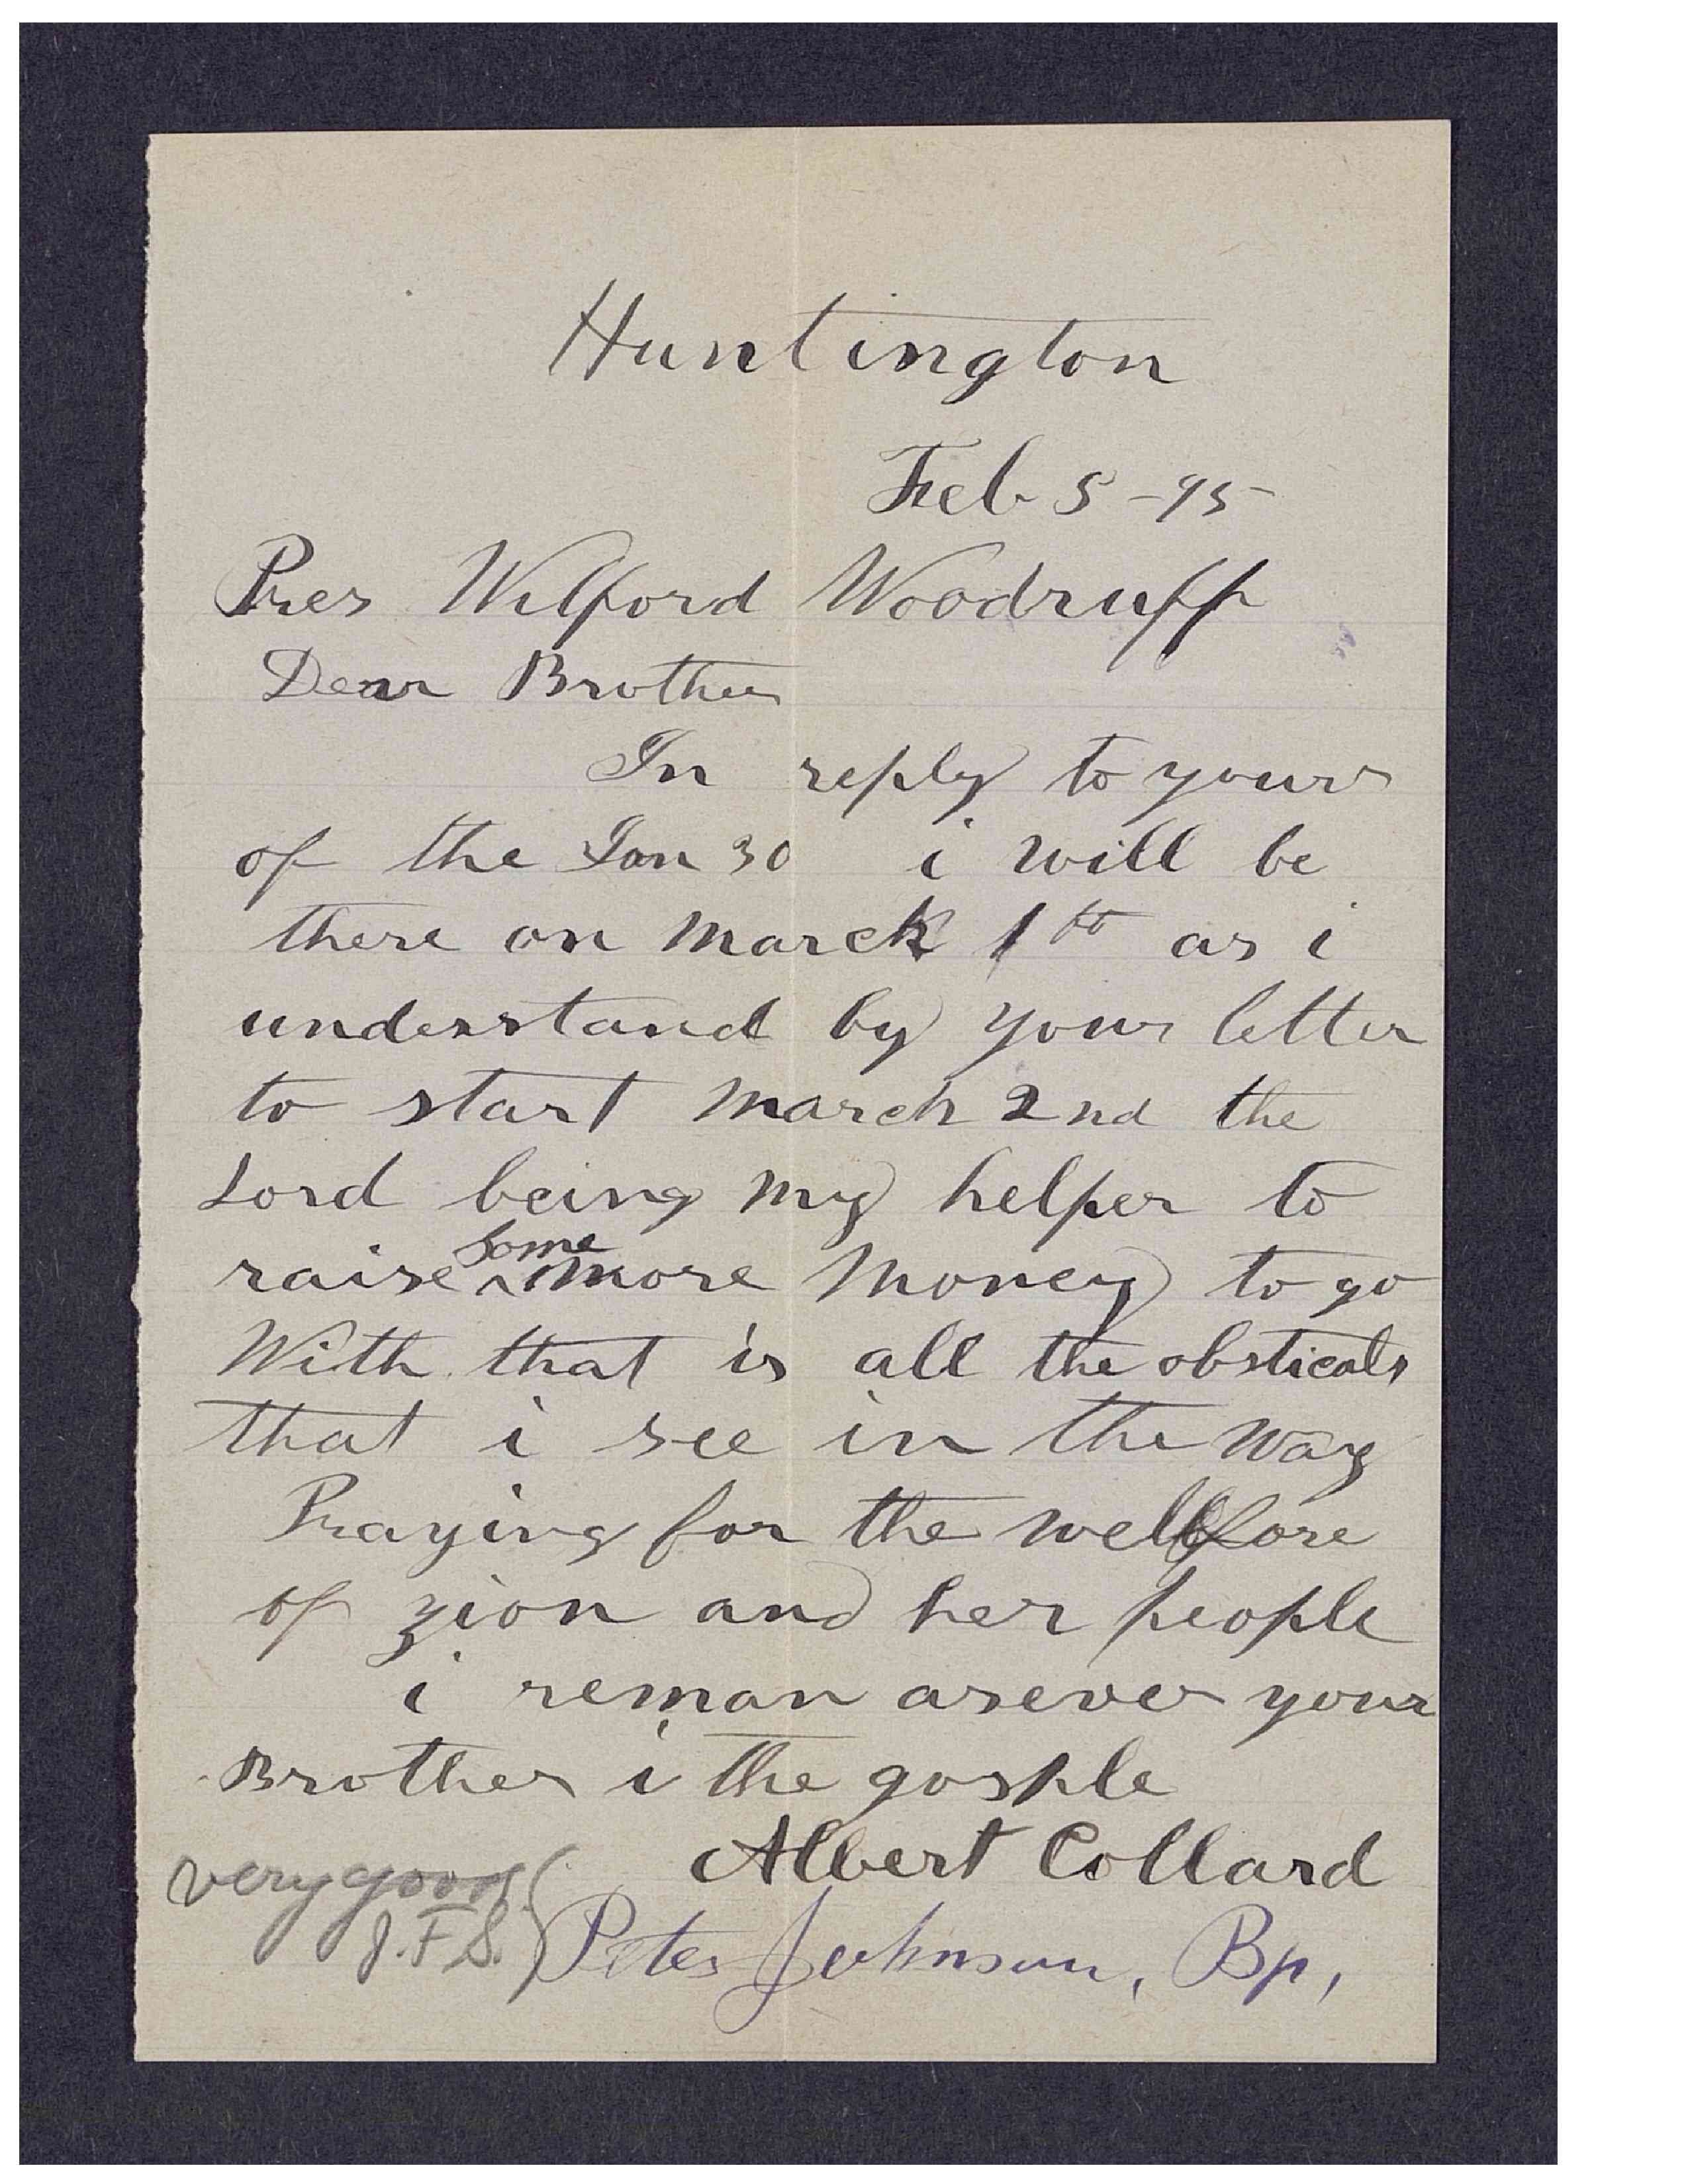 Huntington
Feb 5 -95
Pres Wilford Woodruff
Dear Brother
In reply to yours
of the Jan 30 i will be
there on march 1st as i
understand by your letter
to start march 2nd the
Lord being my helper to
raise some more money to go
With that is all the obsticals
that i see in the way
Praying for the wellfare
of zion and her people
i reman as ever your
Brother i the gosple
Albert Collard
very good
J.F.S. Peter Johnson, Bp,